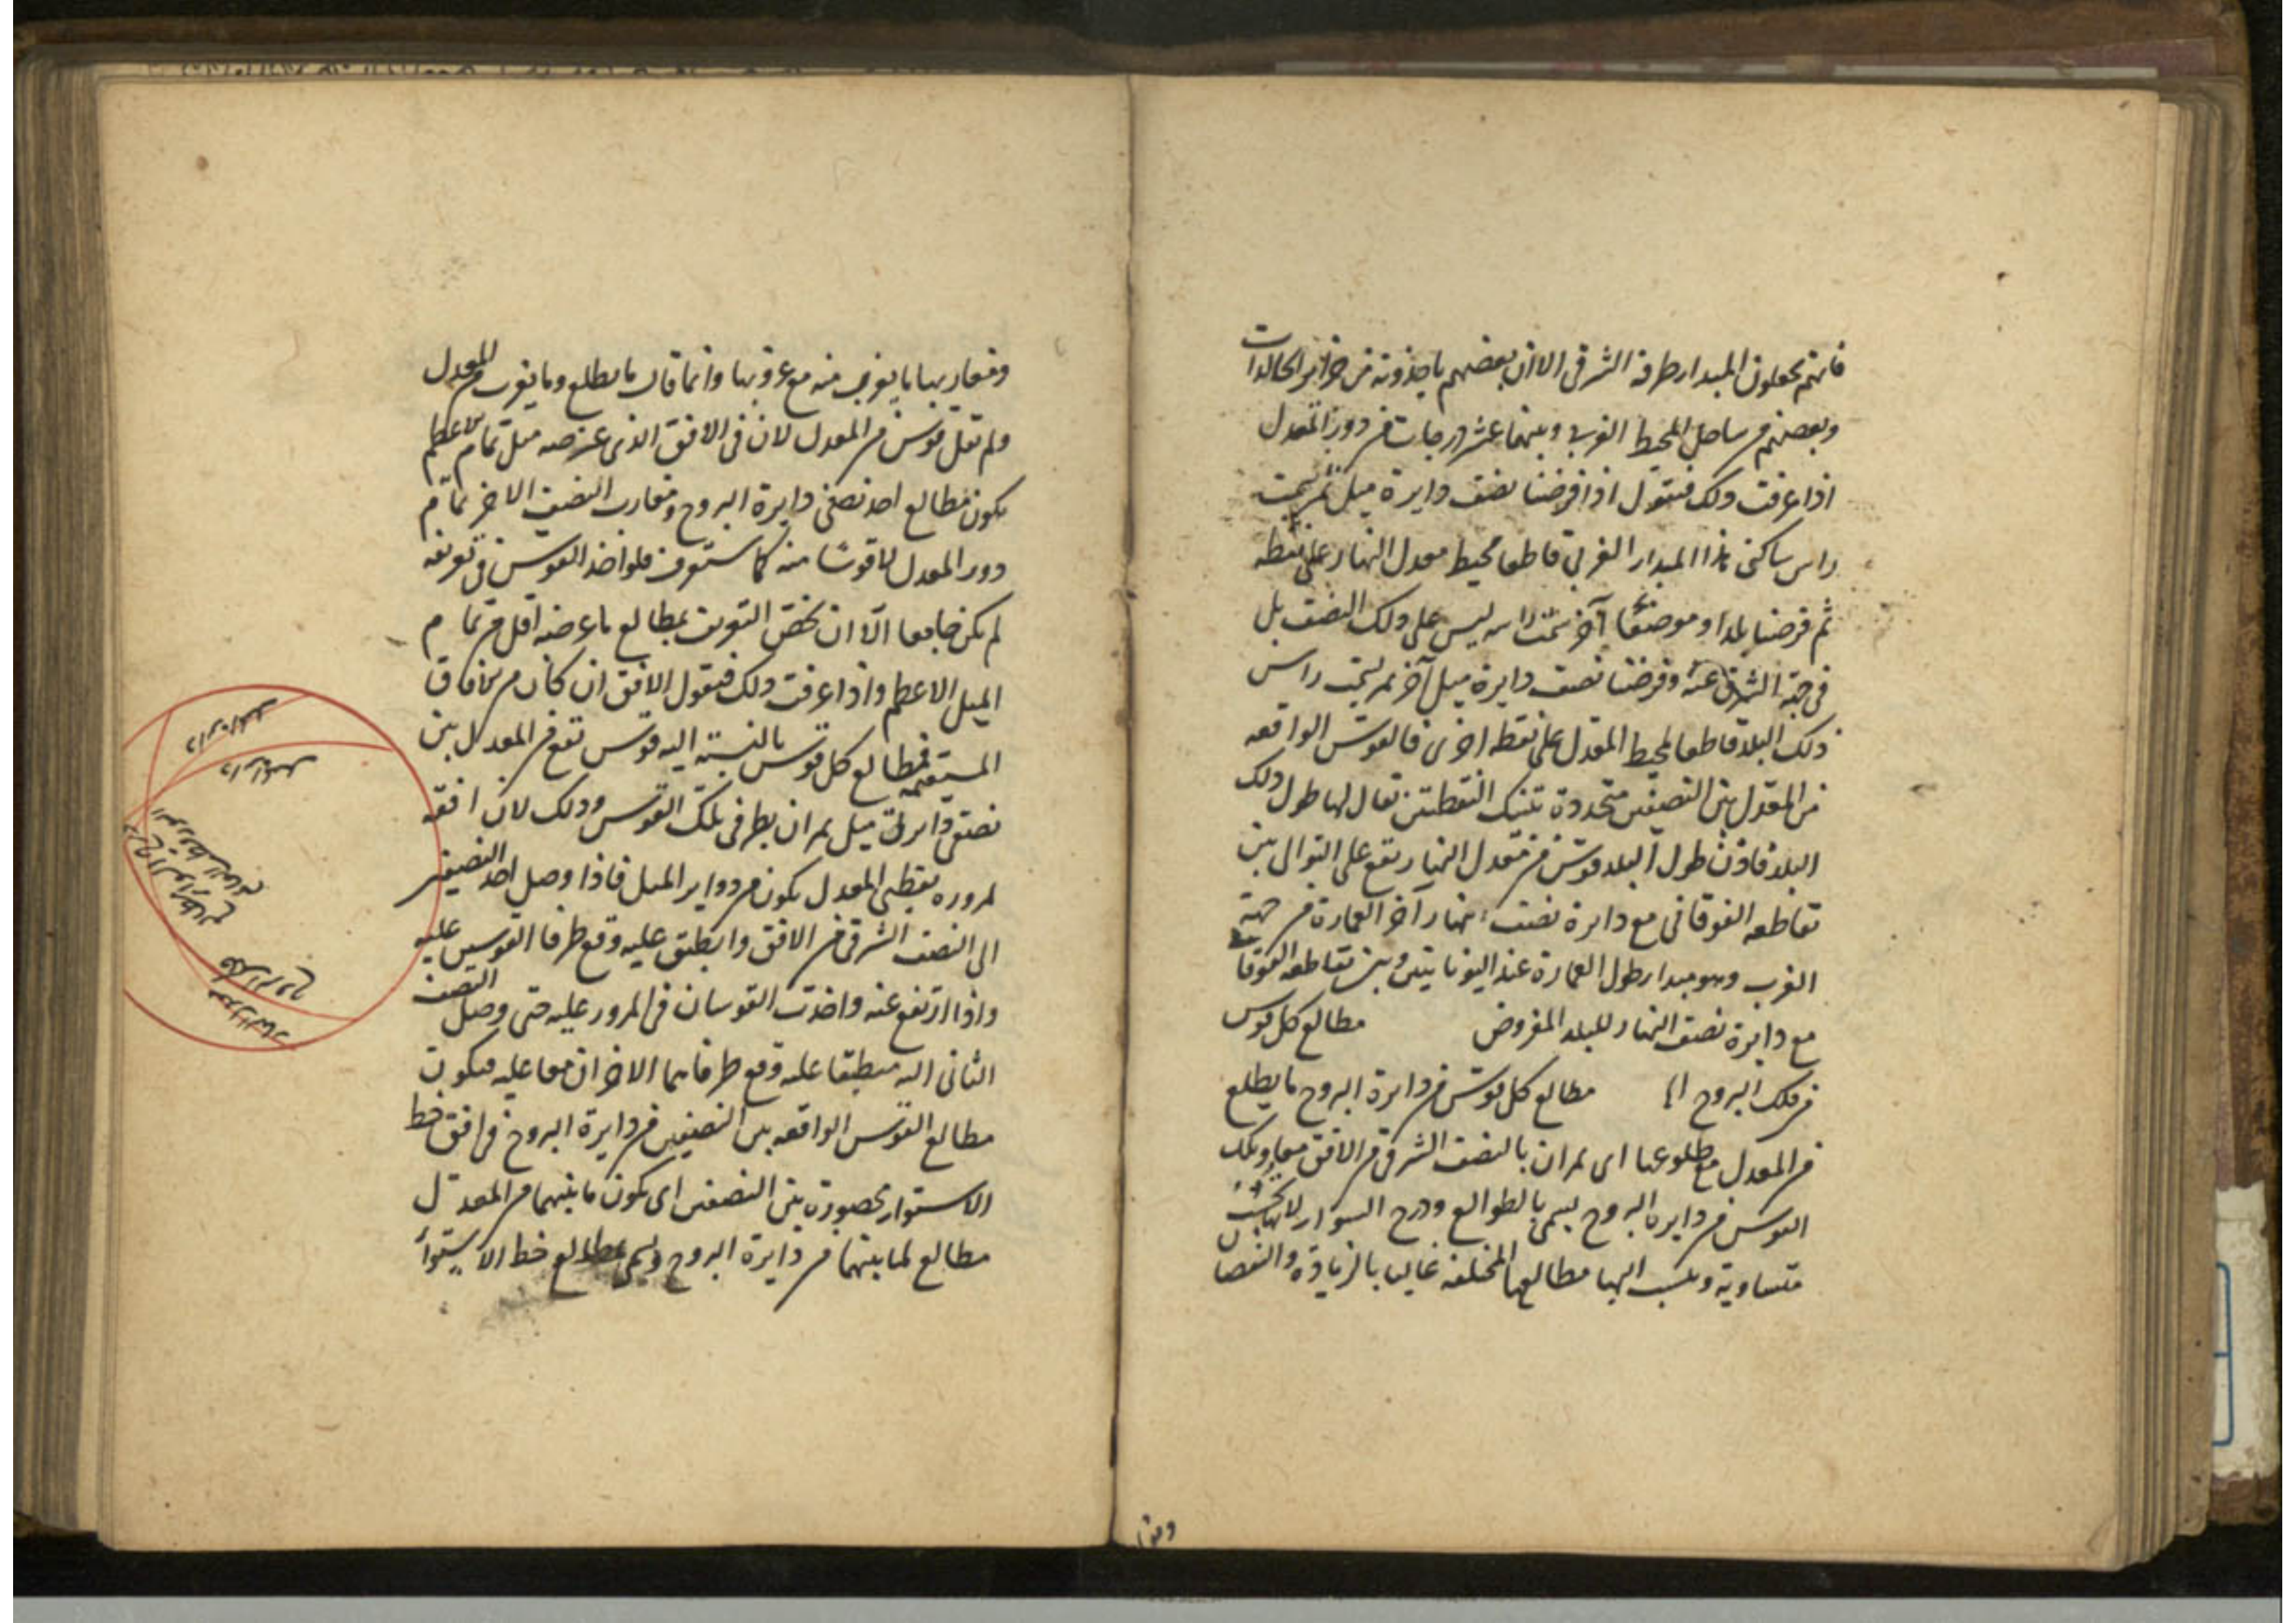 فانهم يجعلون المبدا طرفه الشرقى الا ان بعضهم ياخذونه من جزاير الخالدات
وبعضهم من ساحل المحيط الغربى وبينهما عشر درجات من دور المعدل
اذا عرفت ذلك فنقول اذا فرضنا نصف دايرة ميل تمر بسمت
راس ساكنى هذا المبدا الغربى قاطعا محيط معدل النهار على نقطه
ثم فرضنا بلدا او موضعا آخر سمت راسه ليس على ذلك النصف بل
فى جهة الشرق عنه وفرضنا نصف دايرة ميل آخر تمر بسمت راس
ذلك البلد قاطعا لمحيط المعدل على نقطه اخرى فالقوس الواقعه
من المعدل بين النصفين متحددة بتينك النقطتين يقال لها طول ذلك
البلد فاذن طول البلد قوس من معدل النهار يقع على التوالى بين
تقاطعه الفوقانى مع دايرة نصف نهار آخر العمارة من جهة
الغرب وهو مبدا طول العمارة عند اليونانيين وبين تقاطعه الفوقانى
مع دايرة نصف النهار للبلد المفروض مطالع كل قوس
من فلك البروج مطالع كل قوس من دايرة البروج ما يطلع
من المعدل مع طلوعها اى يمران بالنصف الشرقى من الافق معا وتلك
القوس من دايرة البروج يسمى بالطوالع ودرج السواء لانها
متساوية وينسب اليها مطالعها المختلفه غالبا بالزيادة والنقصان
ومغاربها ما يغرب منه مع غروبها وانما قال ما يطلع وما يغرب من المعدل
ولم يقل قوس من المعدل لان فى الافق الذى عرضه مثل تمام الميل الاعظم
يكون مطالع احد نصفى دايرة البروج ومغارب النصف الاخر تمام
دور المعدل لا قوسا منه كما ستعرف فلو اخذ القوس فى تعريفه
لم يكن جامعا الا ان يخص التعريف بمطالع ما عرضه اقل من تمام
الميل الاعظم واذا عرفت ذلك فنقول الافق ان كان من الآفاق
المستقيمه فمطالع كل قوس بالنسبة اليه قوس تقع من المعدل بين
نصفى دايرتى ميل يمران بطرفى تلك القوس وذلك لان افقه
لمروره بقطبى المعدل يكون من دواير الميل فاذا وصل احد النصفين
الى النصف الشرقى من الافق وانطبق عليه وقع طرفا القوسين عليه
واذا ارتفع عنه واخذت القوسان فى المرور عليه حتى وصل النصف
الثانى اليه منطبقا عليه وقع طرفاهما الاخران معا عليه فيكون
مطالع القوس الواقعه بين النصفين من دايرة البروج فى افق خط
الاستواء محصورة بين النصفين اى يكون ما بينهما من المعدل
مطالع لما بينهما من دايرة البروج ويسمى مطالع خط الاستواء
دايرة الميل
دايرة الميل
فلك البروج
معدل النهار